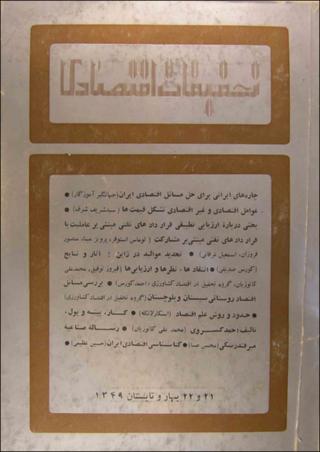 تحقیقات اقتصادی
چاره‌های ایرانی برای حل مسائل اقتصادی ایران (جهانگیر آموزگار) •
عوامل اقتصادی و غیر اقتصادی تشکل قیمت ها (سید شریف شرفه) •
بحثی درباره ارزیابی تطبیقی قرار داد های نفتی مبتنی بر عاملیت با
قرار داد های نفتی مبتنی بر مشارکت (توماس استوفر، پرویز
• تحدید موالید در ژاپن : آثار و نتایج
• انتقاد ها ، نظرها و ارزیابی‌ها (فیروز توفیق، محمدعلی
کاتوزیان، گروه تحقیق در اقتصاد کشاورزی، احمد کورس) • بررسی مسائل
اقتصاد روستائی سیستان و بلوچستان (گروه تحقیق در اقتصاد کشاورزی)
• حدود و روش علم اقتصاد (اسکار لانگه) • کار، بیمه و پول،
تالیف: احمد کسروی (محمد علی کاتوزیان) • رساله صناعیه
میرفندرسکی (محسن صبا) • کتابشناسی اقتصادی ایران (حسین عظیمی) •
۲۱ و ۲۲ بهار و تابستان ۱۳۴۹